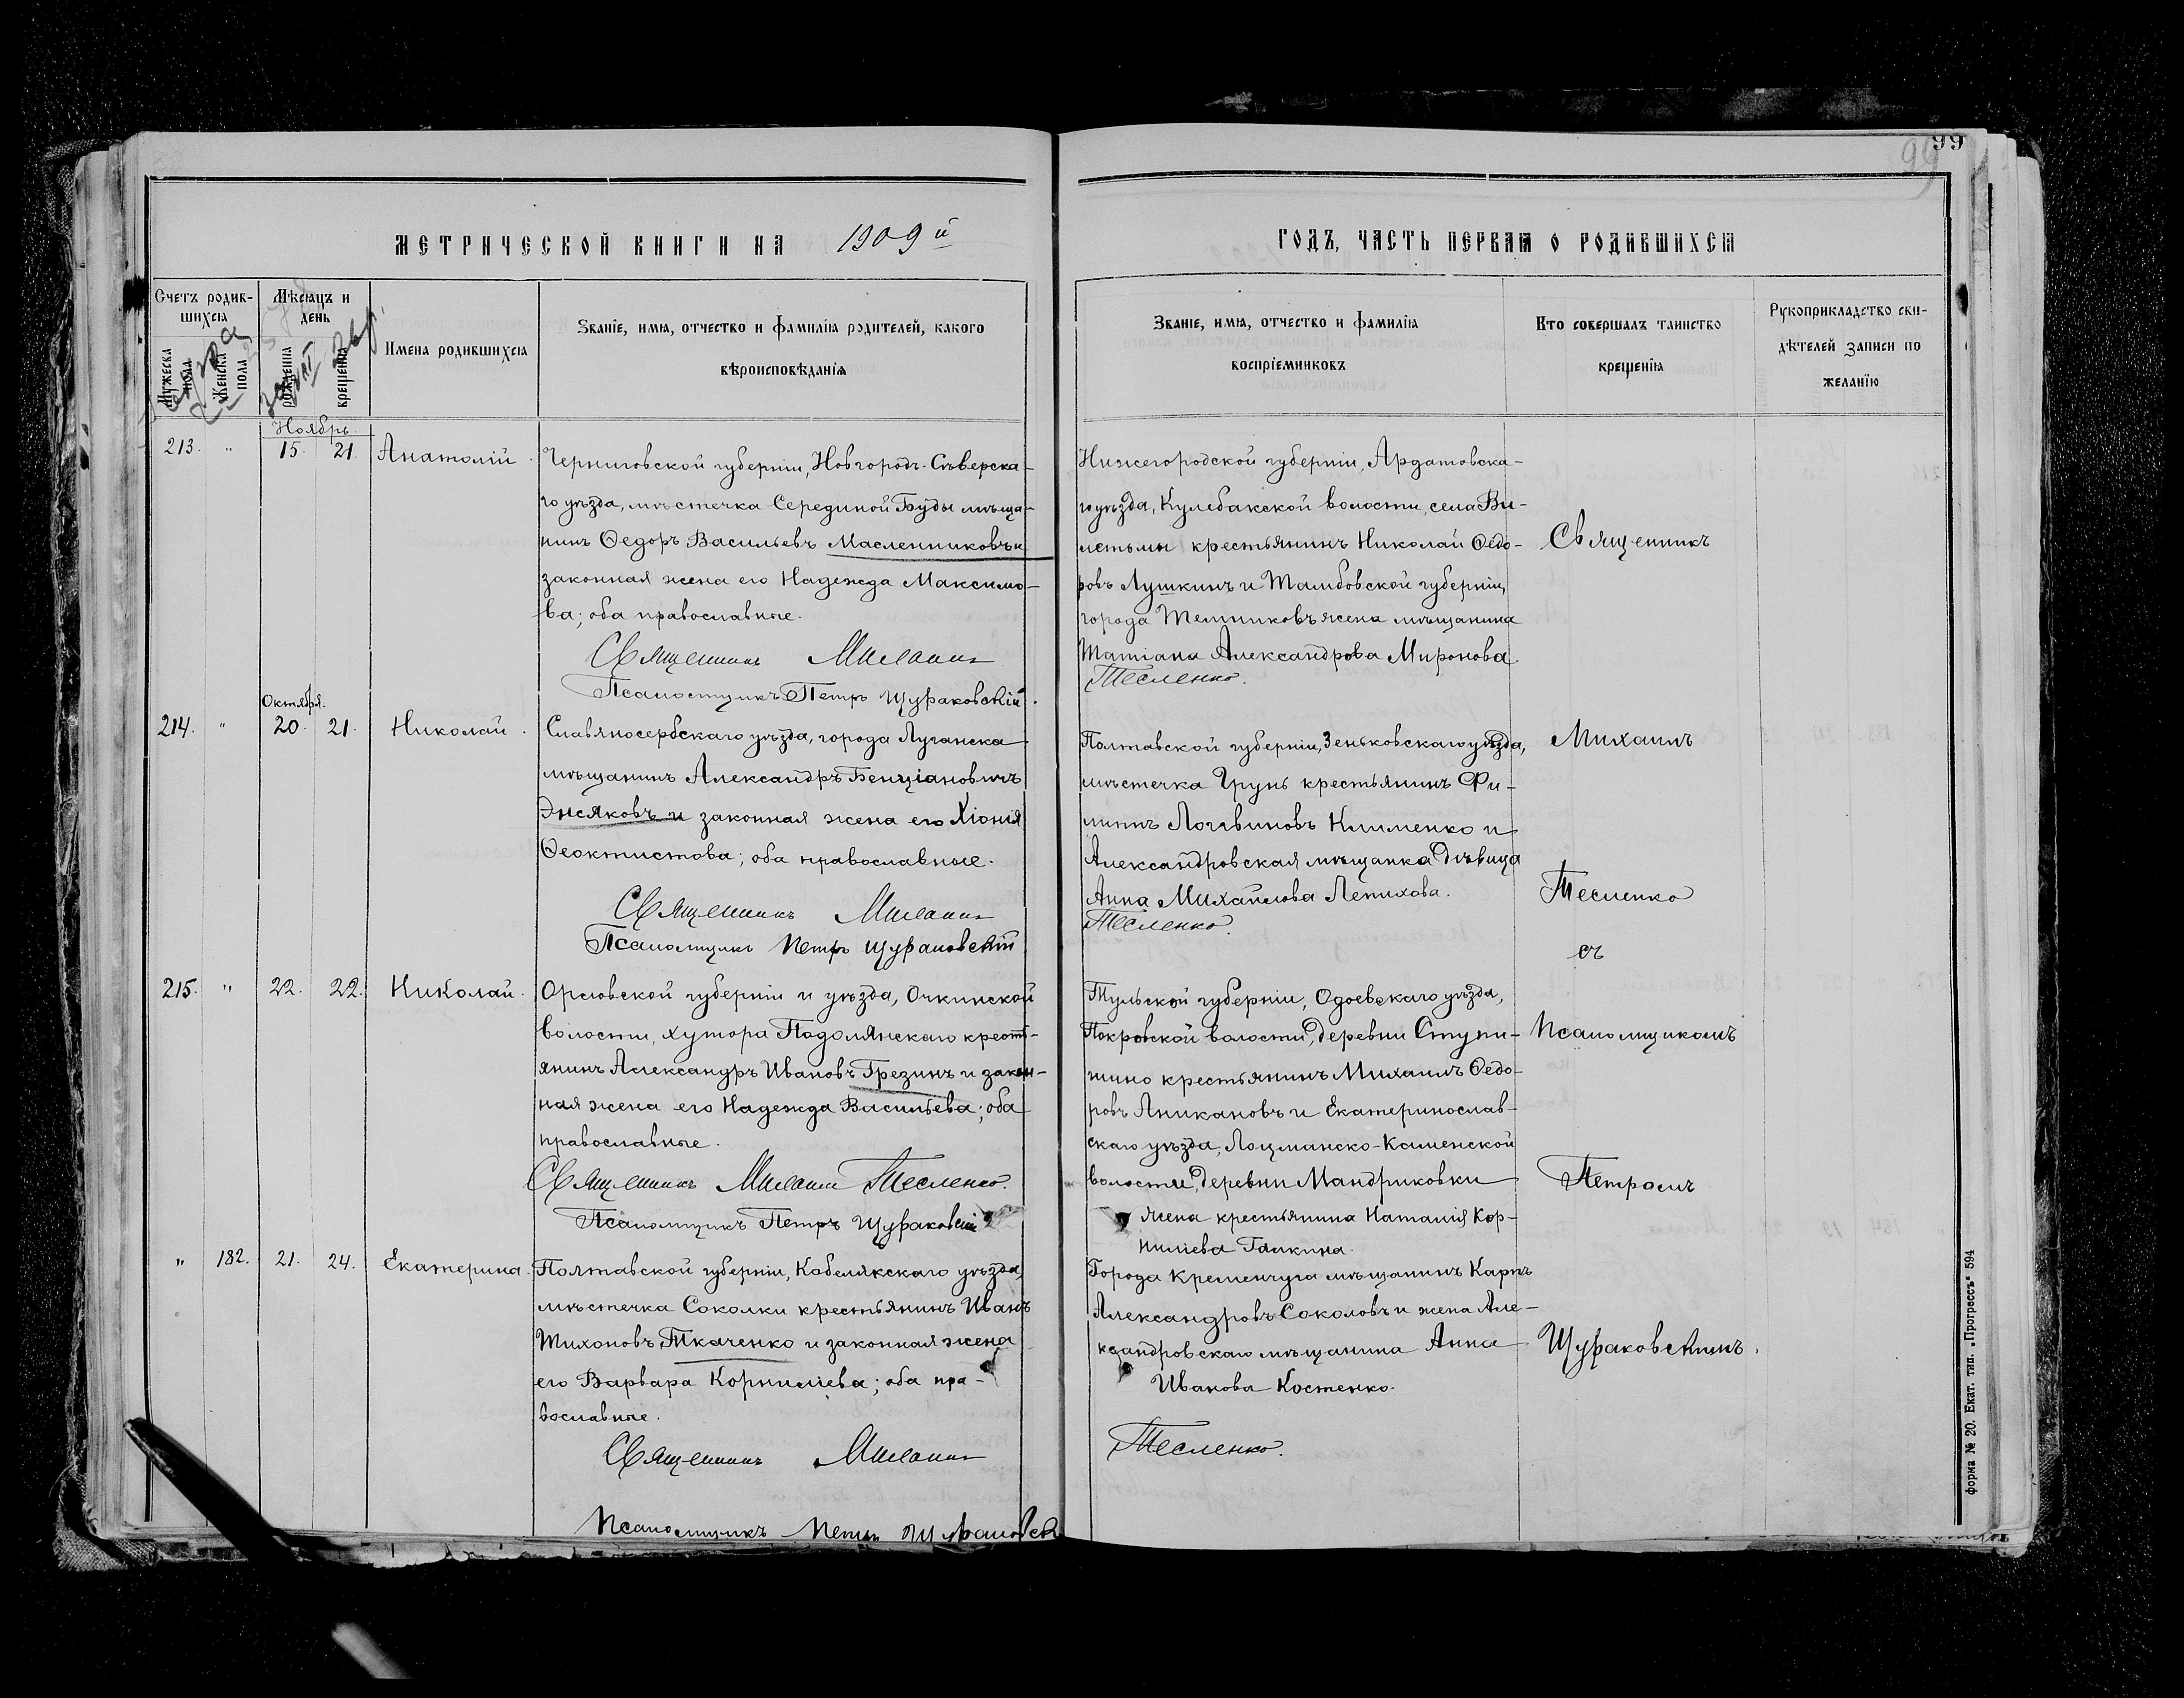 99
99
МЕТРИЧЕСКОЙ КНИГИ НА 1909й
ГОДЪ, ЧАСТЬ ПЕРВАЯ О РОДИВШИХСЯ
Счетъ родив-
шихся
Мужеска
пола
Женска
пола
Мѣсяцъ и
день
рожденія
крещенія
Имена родившихся
Званіе, имя, отчество и фамилія родителей, какого
вѣроисповѣданія
Званіе, имя, отчество и фамилія
воспріемниковъ
Кто совершалъ таинство
крещенія
Рукоприкладство сви-
дѣтелей записи по
желанію
Ноябрь.
213. " 15. 21. Анатолій.
Черниговской губерніи, Новгородъ-Сѣверска-
го уѣзда, мѣстечка Серединой Буды мѣща-
нинъ Ѳедоръ Васильевъ Масленниковъ и
законная жена его Надежда Максимо-
ва; оба православные.
Священникъ Михаилъ
Псаломщикъ Петръ Щураковскій.
Нижегородской губерніи, Ардатовска-
го уѣзда, Кулебакской волости, села Ви-
летьмы крестьянинъ Николай Ѳедо-
ровъ Лушкинъ и Тамбовской губерніи,
города Темниковъ жена мѣщанина
Татіана Александрова Миронова.
Тесленко.
Октября.
214. " 20. 21. Николай.
Славяносербскаго уѣзда, города Луганска
мѣщанинъ Александръ Бенціановичъ
Энсяковъ и законная жена его Хіонія
Ѳеоктистова; оба православные.
Священникъ Михаилъ
Псаломщикъ Петръ Щураковскій
Полтавской губерніи, Зеньковскаго уѣзда,
мѣстечка Грунь крестьянинъ Фи-
липпъ Логвиновъ Клименко и
Александровская мѣщанка дѣвица
Анна Михайлова Лепихова.
Тесленко.
215. " 22. 22. Николай.
Орловской губерніи и уѣзда, Очкинской
волости, хутора Подолянскаго кресть-
янинъ Александръ Ивановъ Грезинъ и закон-
ная жена его Надежда Васильева; оба
православные.
Священникъ Михаилъ Тесленко.
Псаломщикъ Петръ Щураковскій
Тульской губерніи, Одоевскаго уѣзда,
Покровской волости, деревни Ступи-
шино крестьянинъ Михаилъ Ѳедо-
ровъ Аникановъ и Екатеринослав-
скаго уѣзда, Лоцманско-Каменской
волости, деревни Мандриковки
жена крестьянина Наталія Кор-
нилiева Галкина.
" 182. 21. 24. Екатерина.
Полтавской губерніи, Кобелякскаго уѣзда,
мѣстечка Соколки крестьянинъ Иванъ
Тихоновъ Ткаченко и законная жена
его Варвара Корниліева; оба пра-
вославные.
Священникъ Михаилъ
Псаломщикъ Петръ Щураковскій
Города Кременчуга мѣщанинъ Карпъ
Александровъ Соколовъ и жена Але-
ксандровскаго мѣщанина Анна
Иванова Костенко.
Тесленко.
Священникъ
Михаилъ
Тесленко
съ
Псаломщикомъ
Петромъ
Щураковскимъ.
форма № 20. Екат. тип. „Прогрессъ" 594